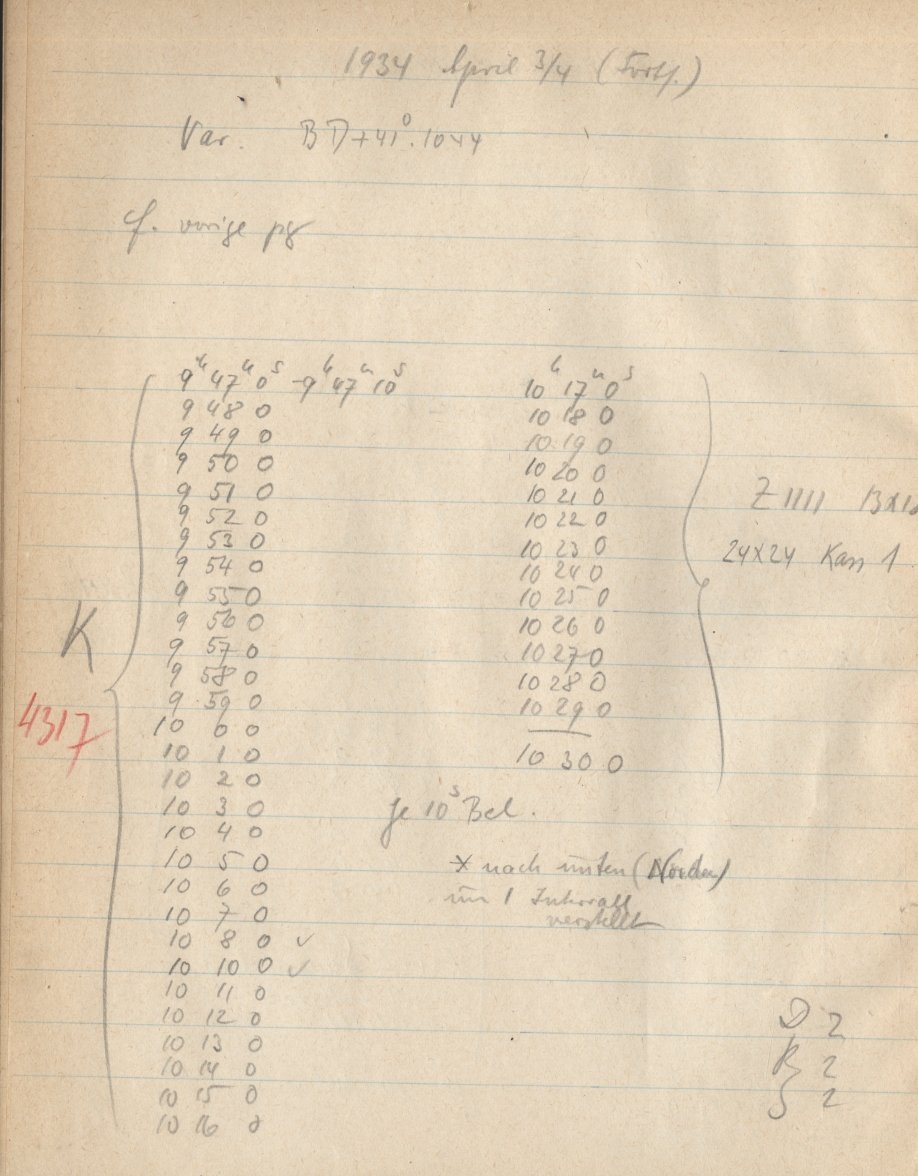 1934 April 3/4 (Forts.)
Var. BD+41°.1044
cf. vorige pg
9ʰ47ᵐ0ˢ -9ʰ47ᵐ10ˢ
9 48 0
9 49 0
9 50 0
9 51 0
9 52 0
9 53 0
9 54 0
9 55 0
9 56 0
9 57 0
9 58 0
9 59 0
10 0 0
10 1 0
10 2 0
10 3 0
10 4 0
10 5 0
10 6 0
10 7 0
10 8 0 ✓
10 10 0 ✓
10 11 0
10 12 0
10 13 0
10 14 0
10 15 0
10 16 0
K
4317
10ʰ17ᵐ0ˢ
10 18 0
10 19 0
10 20 0
10 21 0
10 22 0
10 23 0
10 24 0
10 25 0
10 26 0
10 27 0
10 28 0
10 29 0
10 30 0
Je 10ˢ Bel.
* nach unten (Norden)
um 1 Intervall
verstellt
Z IIII
24x24 Kass 1
D 2
R 2
S 2